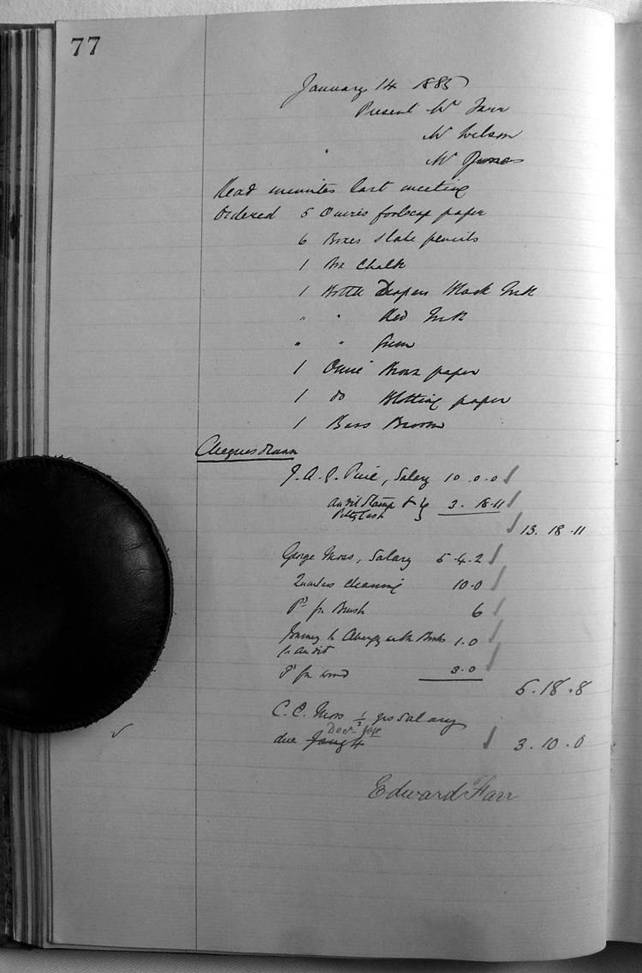 77
January 14 1885
Present Mr Farr
Mr Wilson
Mr Jones
Read minutes last meeting
Ordered 5 Quires foolscap paper
6 Boxes slate pencils
1 Box Chalk
1 Bottle Drapers Black Ink
" " Red Ink
" " Gum
1 Quire Brown paper
1 Do Blotting paper
1 Bass Broom
Cheques drawn
J. A. G. Price, Salary 10.0.0
audit Stamp & 3.18.11
Petty Cash
13.18.11
George Moss, Salary 5.4.2
Quarters cleaning 10.0
Pd for Brush 6
Journey to with Books 1.0
to audit
Pd for wood 3.0
5.18.8
C. E. Moss ½ yrs Salary
Decr 31st
due Jany 4 3.10.0
Edward Farr